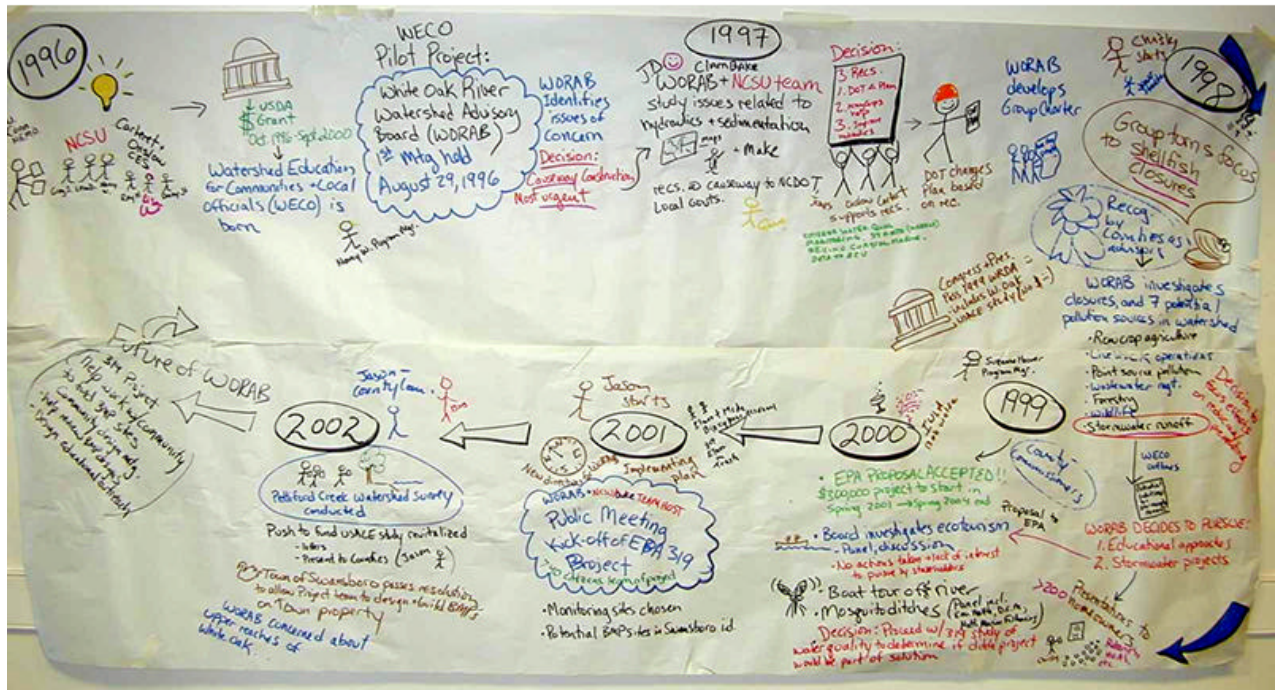 1996
NCSU
Carteret
Onslow
CES
USDA
Grant
Oct. 1996-Sept. 2000
Watershed Education
for Communities + Local
Officials (WECO) is
born
WECO
Pilot Project:
White Oak River
Watershed Advisory
Board (WORAB)
1st Mtg held
August 29, 1996
Program Mgr.
WORAB
Identifies
issues of
concern
Decision:
Causeway Construction
Most urgent
1997
JD
WORAB + NCSU team
study issues related to
hydraulics + sedimentation
maps
- Make
recs. to causeway to NCDOT,
Local Govts.
Decision:
3 Recs.
supports recs.
DOT changes
Plan based
on rec.
WORAB
develops
Group Charter
Christy
starts
1998
Group turns focus
to shellfish
closures
Recog.
by
Counties as
advisors
WORAB investigates
closures, and 7 potential
pollution sources in watershed
• Row crop agriculture
• Point source pollution
• Wastewater mgt.
• Forestry
• Wildlife
• Stormwater runoff
Decision to
focus efforts
on
WECO
WORAB DECIDES TO PURSUE:
1. Educational approaches
2. Stormwater projects
Presentations to
>200 homeowners
Congress + Pres.
Pass 1999 WRDA -
includes W. Oak
USACE study (no $)
Program Mgr.
1999
County
Commissioners
Proposal to
EPA
2000
• EPA PROPOSAL ACCEPTED!!
$300,000 project to start in
Spring 2001 → Spring 2004 end
• Board investigates ecotourism
- Panel discussion
- No actions taken → lack of interest
to pursue by stakeholders
• Boat tour off river
• Mosquito ditches (Panel
Decision: Proceed w/ 319 study of
water quality to determine if ditch project
would be part of solution
Jason
starts
2001
Implementing
plan
New directions
WORAB
TEAM HOST
Public Meeting
Kick-off of EPA 319
Project
citizens learn of project
• Monitoring sites chosen
• Potential BMP sites in Swansboro id.
Jason -
2002
Pettiford Creek Watershed Survey
conducted
Push to fund USACE study revitalized
- letters
- Present to Counties (Jason
Town of Swansboro passes resolution
to allow Project team to design + build BMPs
on Town property
WORAB concerned about
upper reaches of
White Oak
Future of WORAB
319 Project
Help work w/ community
to find BMP sites
Design educational outreach